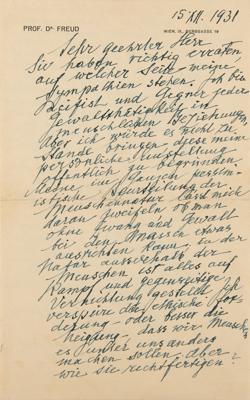 15 XII. 1931
PROF. DR. FREUD
WIEN, IX., BERGGASSE 19
Sehr geehrter Herr
Sie haben richtig erraten
auf welcher Seite meine
Sympathien stehen. Ich bin
Pazifist und Gegner jeder
Gewalttätigkeit in
menschlichen Beziehungen,
Aber ich würde es nicht zu
Stande bringen, diese meine
persönliche Einstellung
öffentlich zu begründen.
Meine im Übrigen pessim-
istische Beurteilung der
Menschennatur lässt mich
daran zweifeln ob man
ohne Zwang und Gewalt
bei den Menschen etwas
ausrichten kann, in der
Natur ausserhalb der
Menschen ist alles auf
Kampf und gegenseitige
Vernichtung gestellt. Ich
verspüre die ethische For-
derung - oder besser die
Neigung - dass wir Mensch
es unter uns anders
machen sollen. Aber
wie sie rechtfertigen?